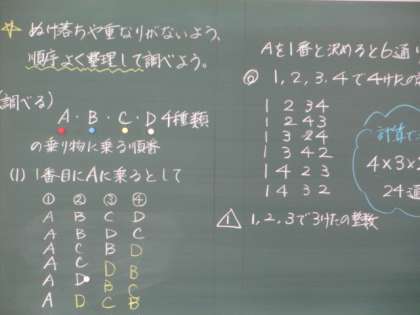 ぬけ落ちや重なりがないよう、
順序よく整理して調べよう。
調べる)
A・B・C・D 4種類
の乗り物に乗る順番
(1) 1番目にAに乗るとして
① ② ③ ④
A B C D
A B D C
A C B D
A C D B
A D B C
A D C B
Aを1番と決めると6通り
◎ 1, 2, 3, 4で4けたの
1 2 3 4
1 2 4 3
1 3 2 4
1 3 4 2
1 4 2 3
1 4 3 2
計算で
4×3×
24通
1 1, 2, 3で3けたの整数